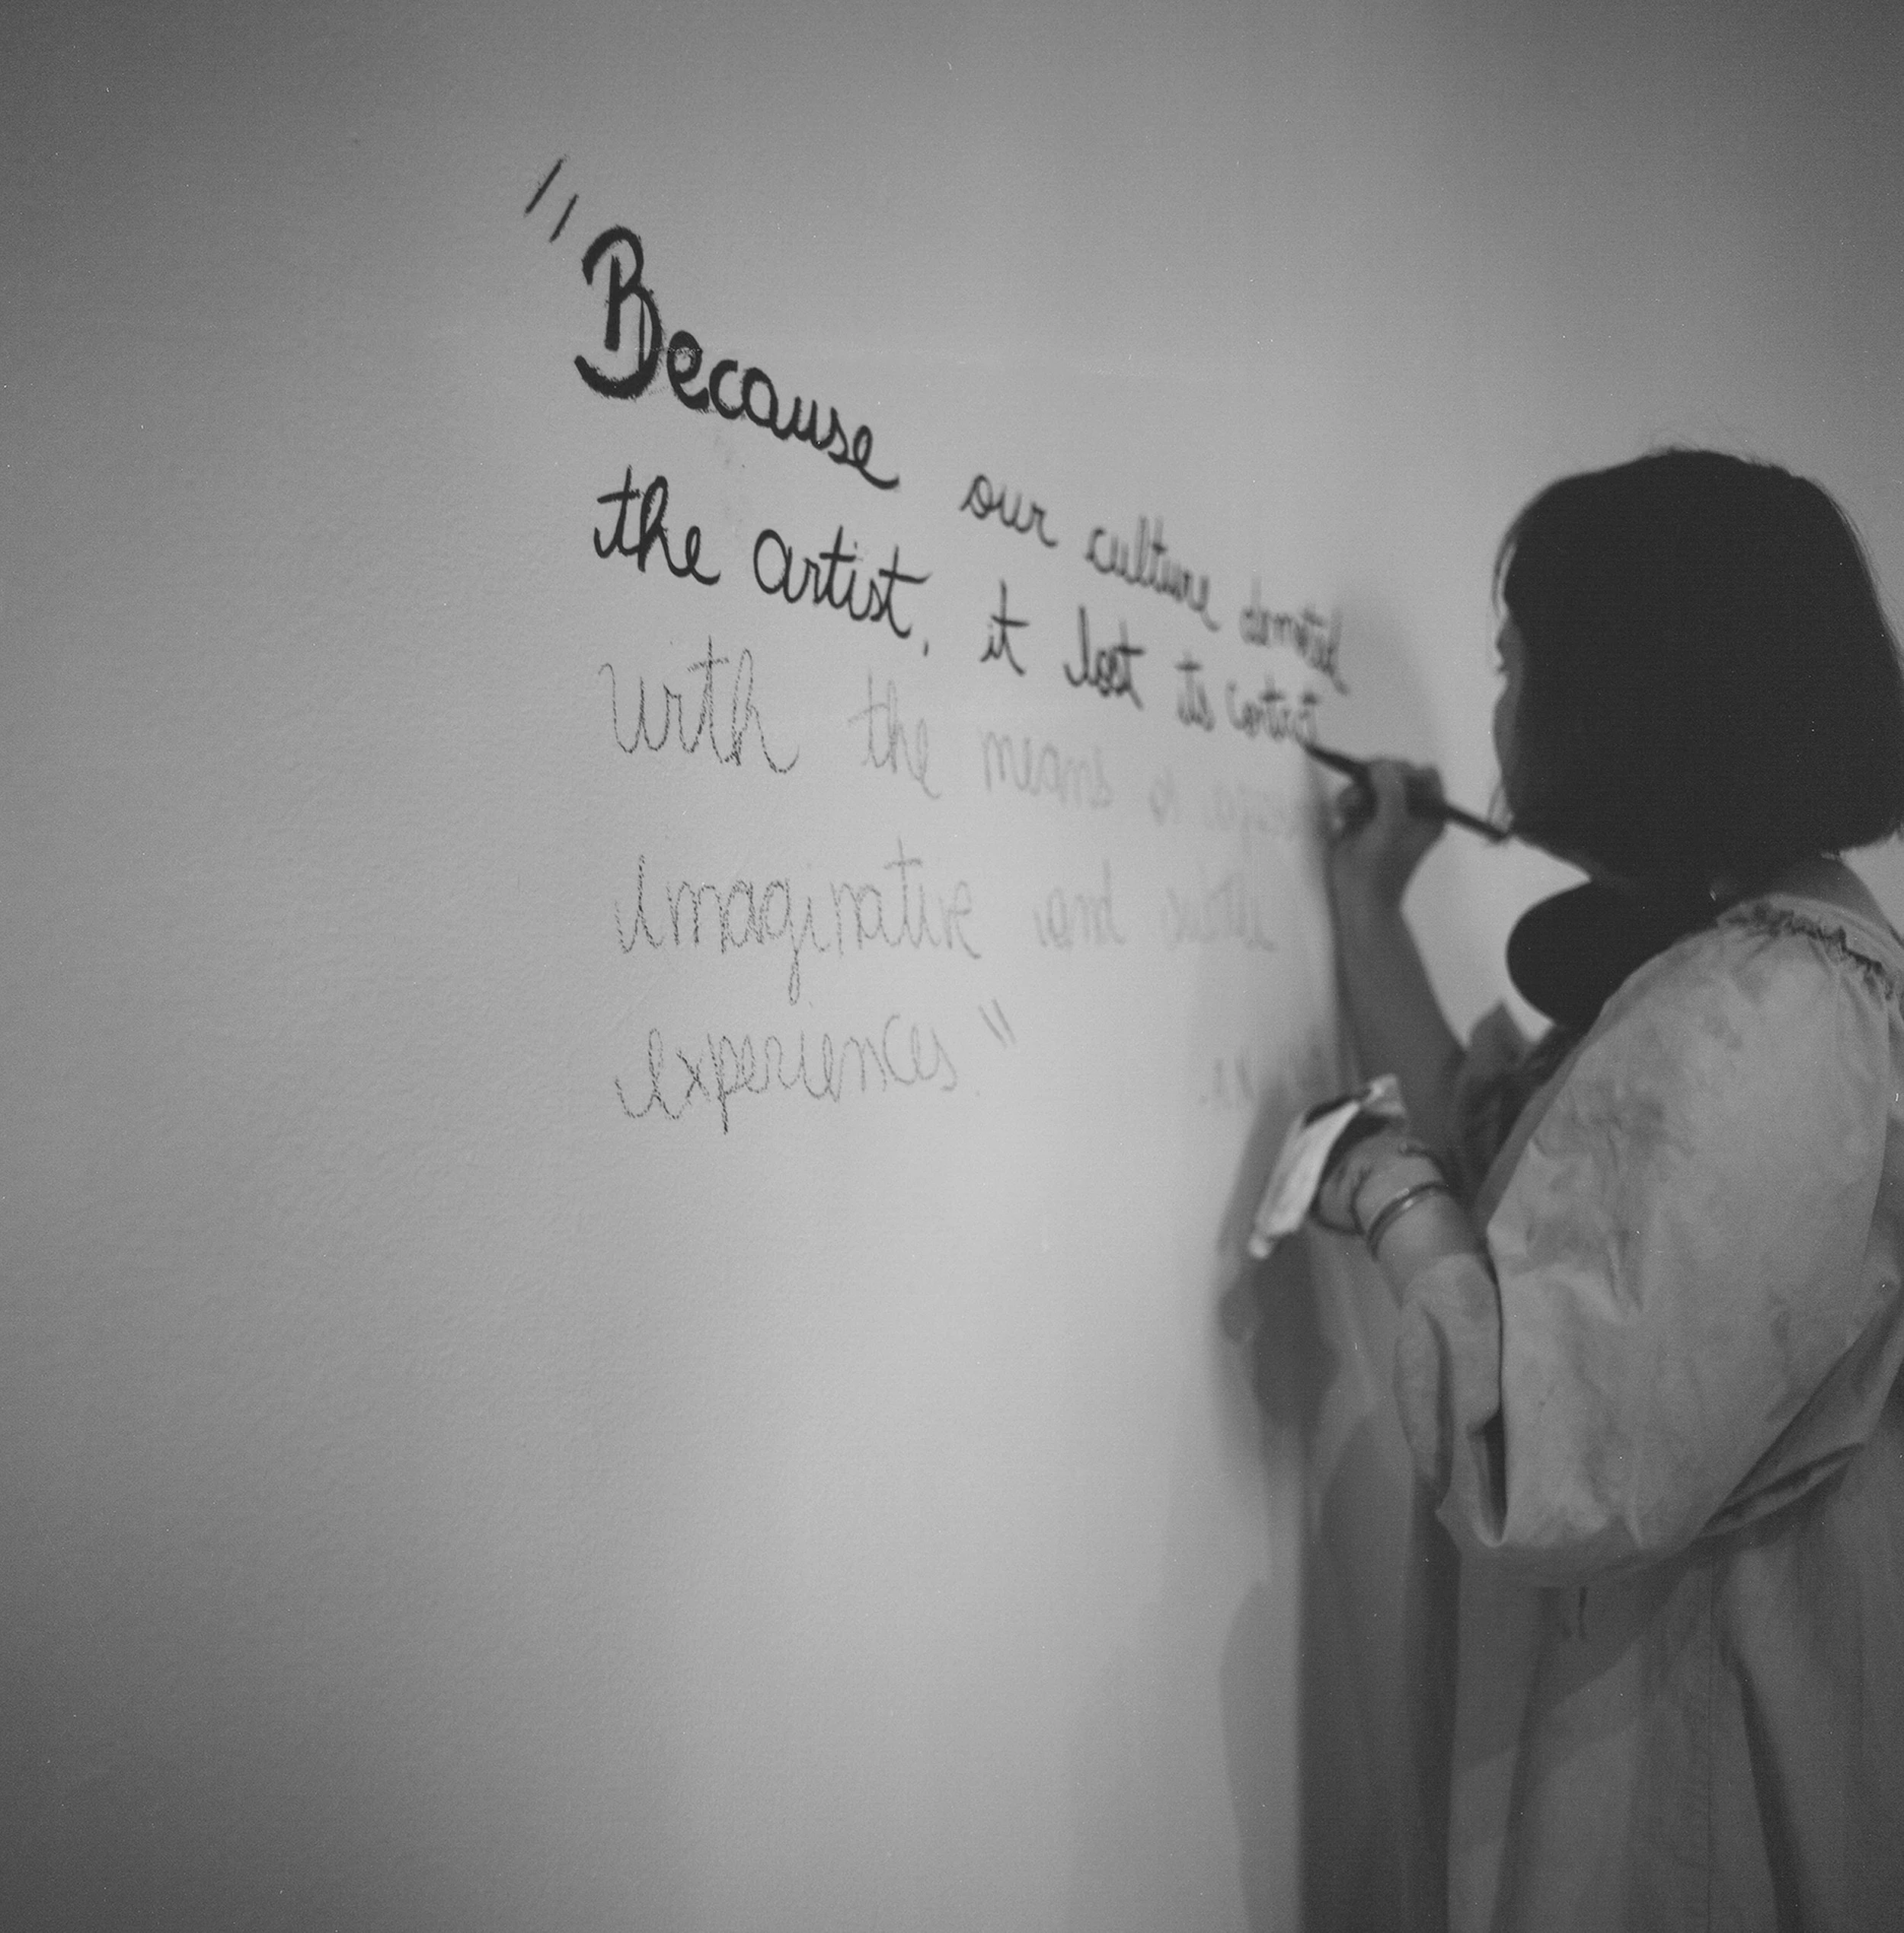 "Because our culture demoted
the artist, it lost its contact
with the means of
imaginative and
experiences."